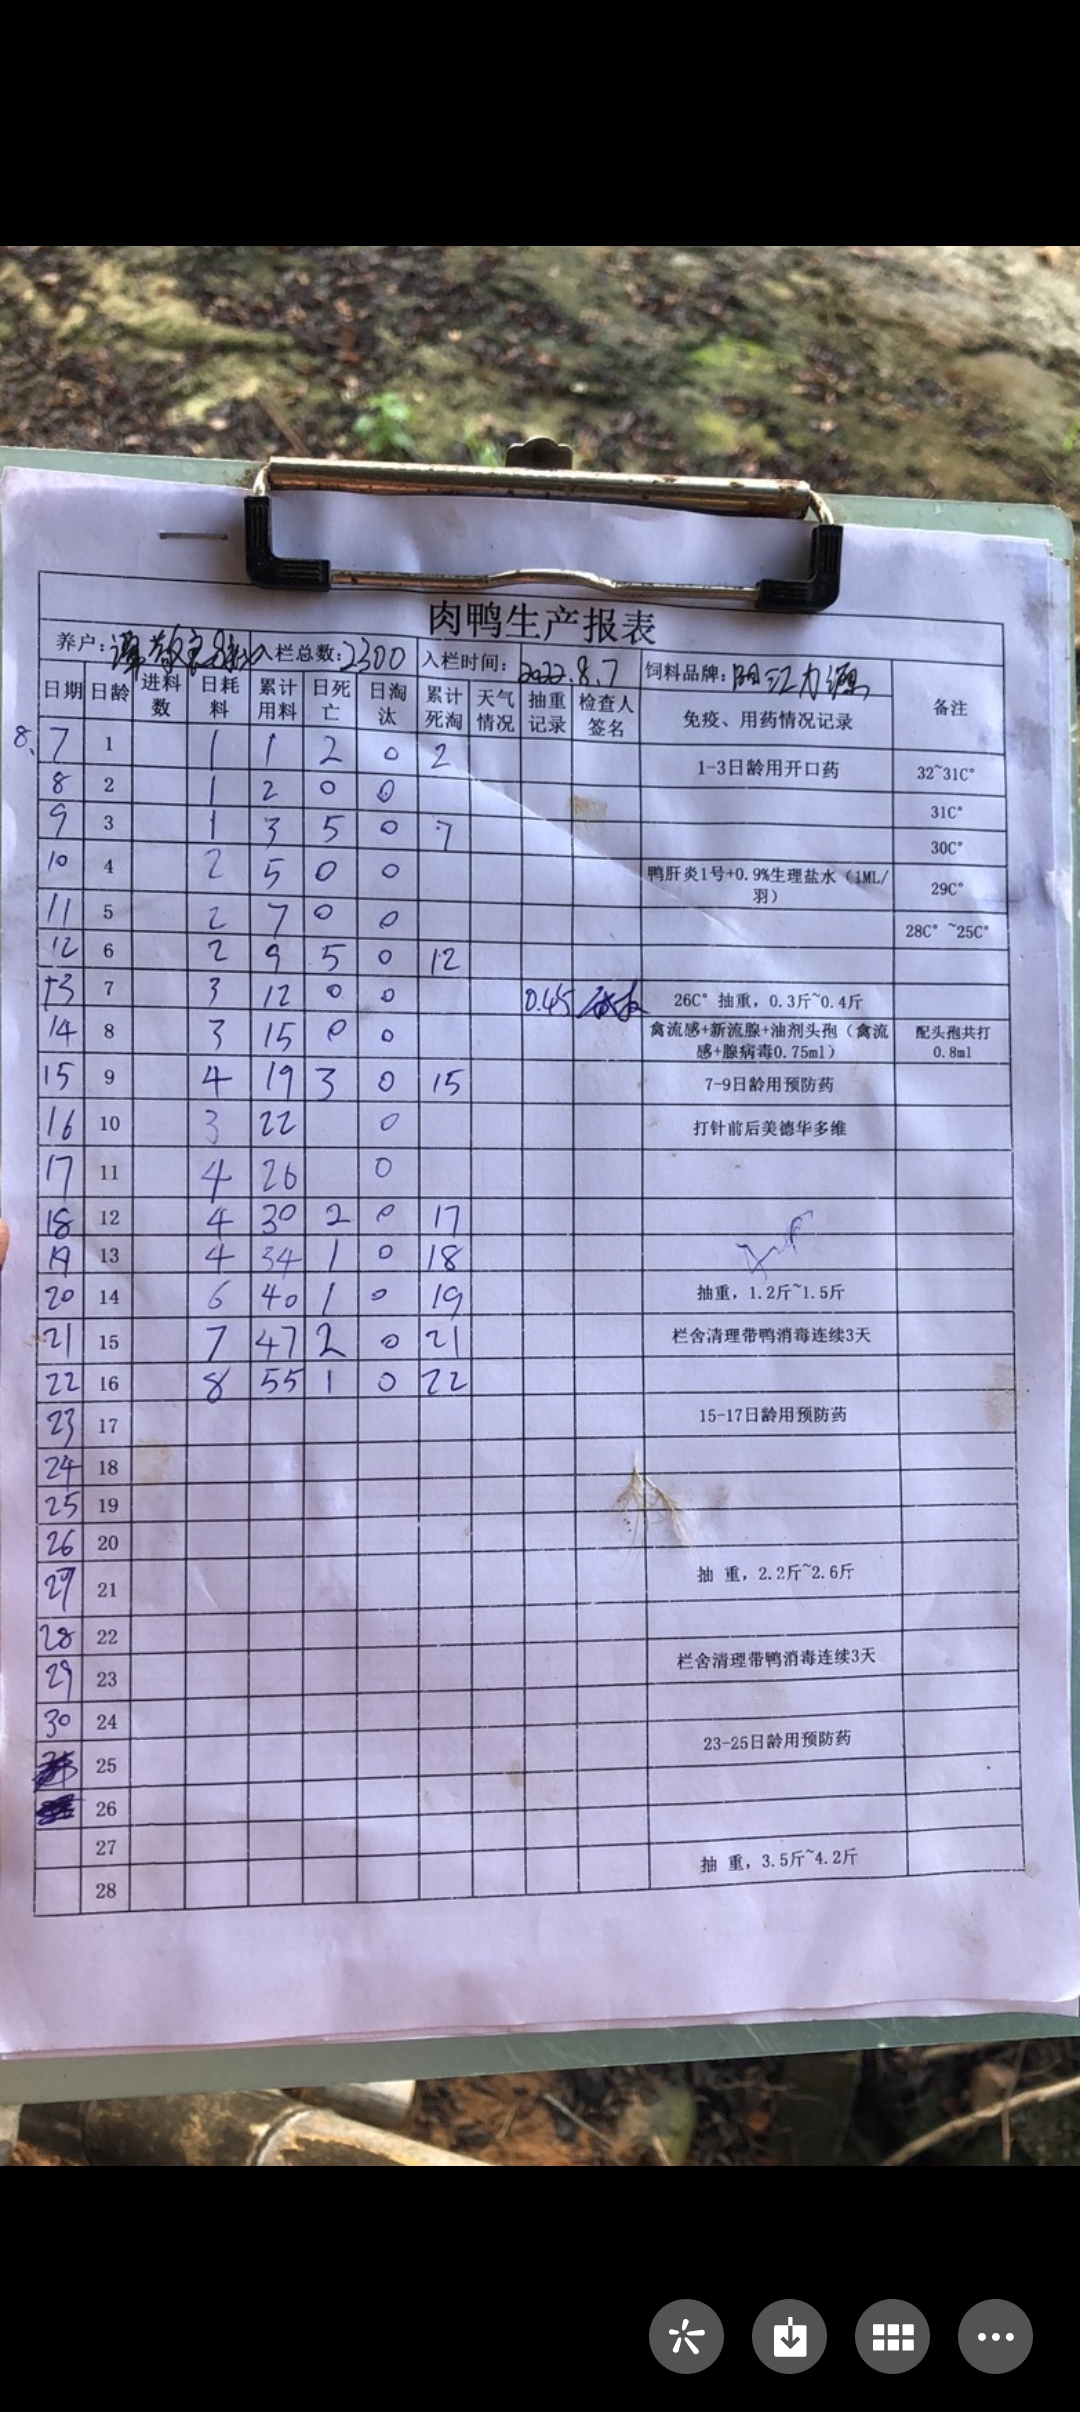 肉鸭生产报表
养户: 入栏总数:2300 入栏时间: 2022.8.7 饲料品牌: 阳江力源
日期 日龄 进料数 日耗料 累计用料 日死亡 日淘汰 累计死淘 天气情况 抽重记录 检查人签名 免疫、用药情况记录 备注
8、7 1 1 1 2 0 2 1-3日龄用开口药 32~31C°
8 2 1 2 0 0 31C°
9 3 1 3 5 0 7 30C°
10 4 2 5 0 0 鸭肝炎1号+0.9%生理盐水（1ML/羽） 29C°
11 5 2 7 0 0 28C° ~25C°
12 6 2 9 5 0 12
13 7 3 12 0 0 0.45 26C° 抽重，0.3斤~0.4斤
14 8 3 15 0 0 禽流感+新流腺+油剂头孢（禽流感+腺病毒0.75ml） 配头孢共打0.8ml
15 9 4 19 3 0 15 7-9日龄用预防药
16 10 3 22 0 打针前后美德华多维
17 11 4 26 0
18 12 4 30 2 0 17
19 13 4 34 1 0 18
20 14 6 40 1 0 19 抽重，1.2斤~1.5斤
21 15 7 47 2 0 21 栏舍清理带鸭消毒连续3天
22 16 8 55 1 0 22
23 17 15-17日龄用预防药
24 18
25 19
26 20
27 21 抽 重，2.2斤~2.6斤
28 22
29 23 栏舍清理带鸭消毒连续3天
30 24
25 23-25日龄用预防药
26
27
28 抽 重，3.5斤~4.2斤